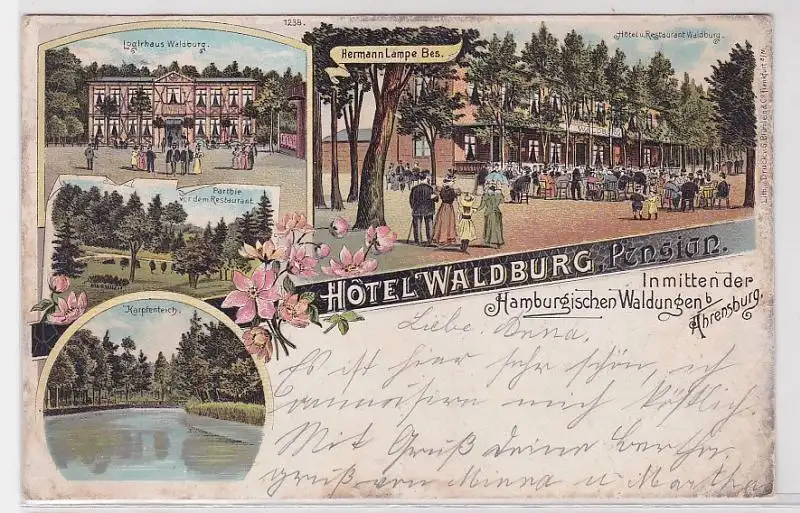 1258.
Logirhaus Waldburg.
Hermann Lampe Bes.
Hôtel u. Restaurant Waldburg.
Parthie
vor dem Restaurant.
Karpfenteich.
HÔTEL WALDBURG, PENSION.
Inmitten der
Hamburgischen Waldungen b
Ahrensburg.
Liebe Anna,
Es ist hier sehr schön, ich
amusiere mich köstlich.
Mit Gruß deine
gruß von Minna u Martha